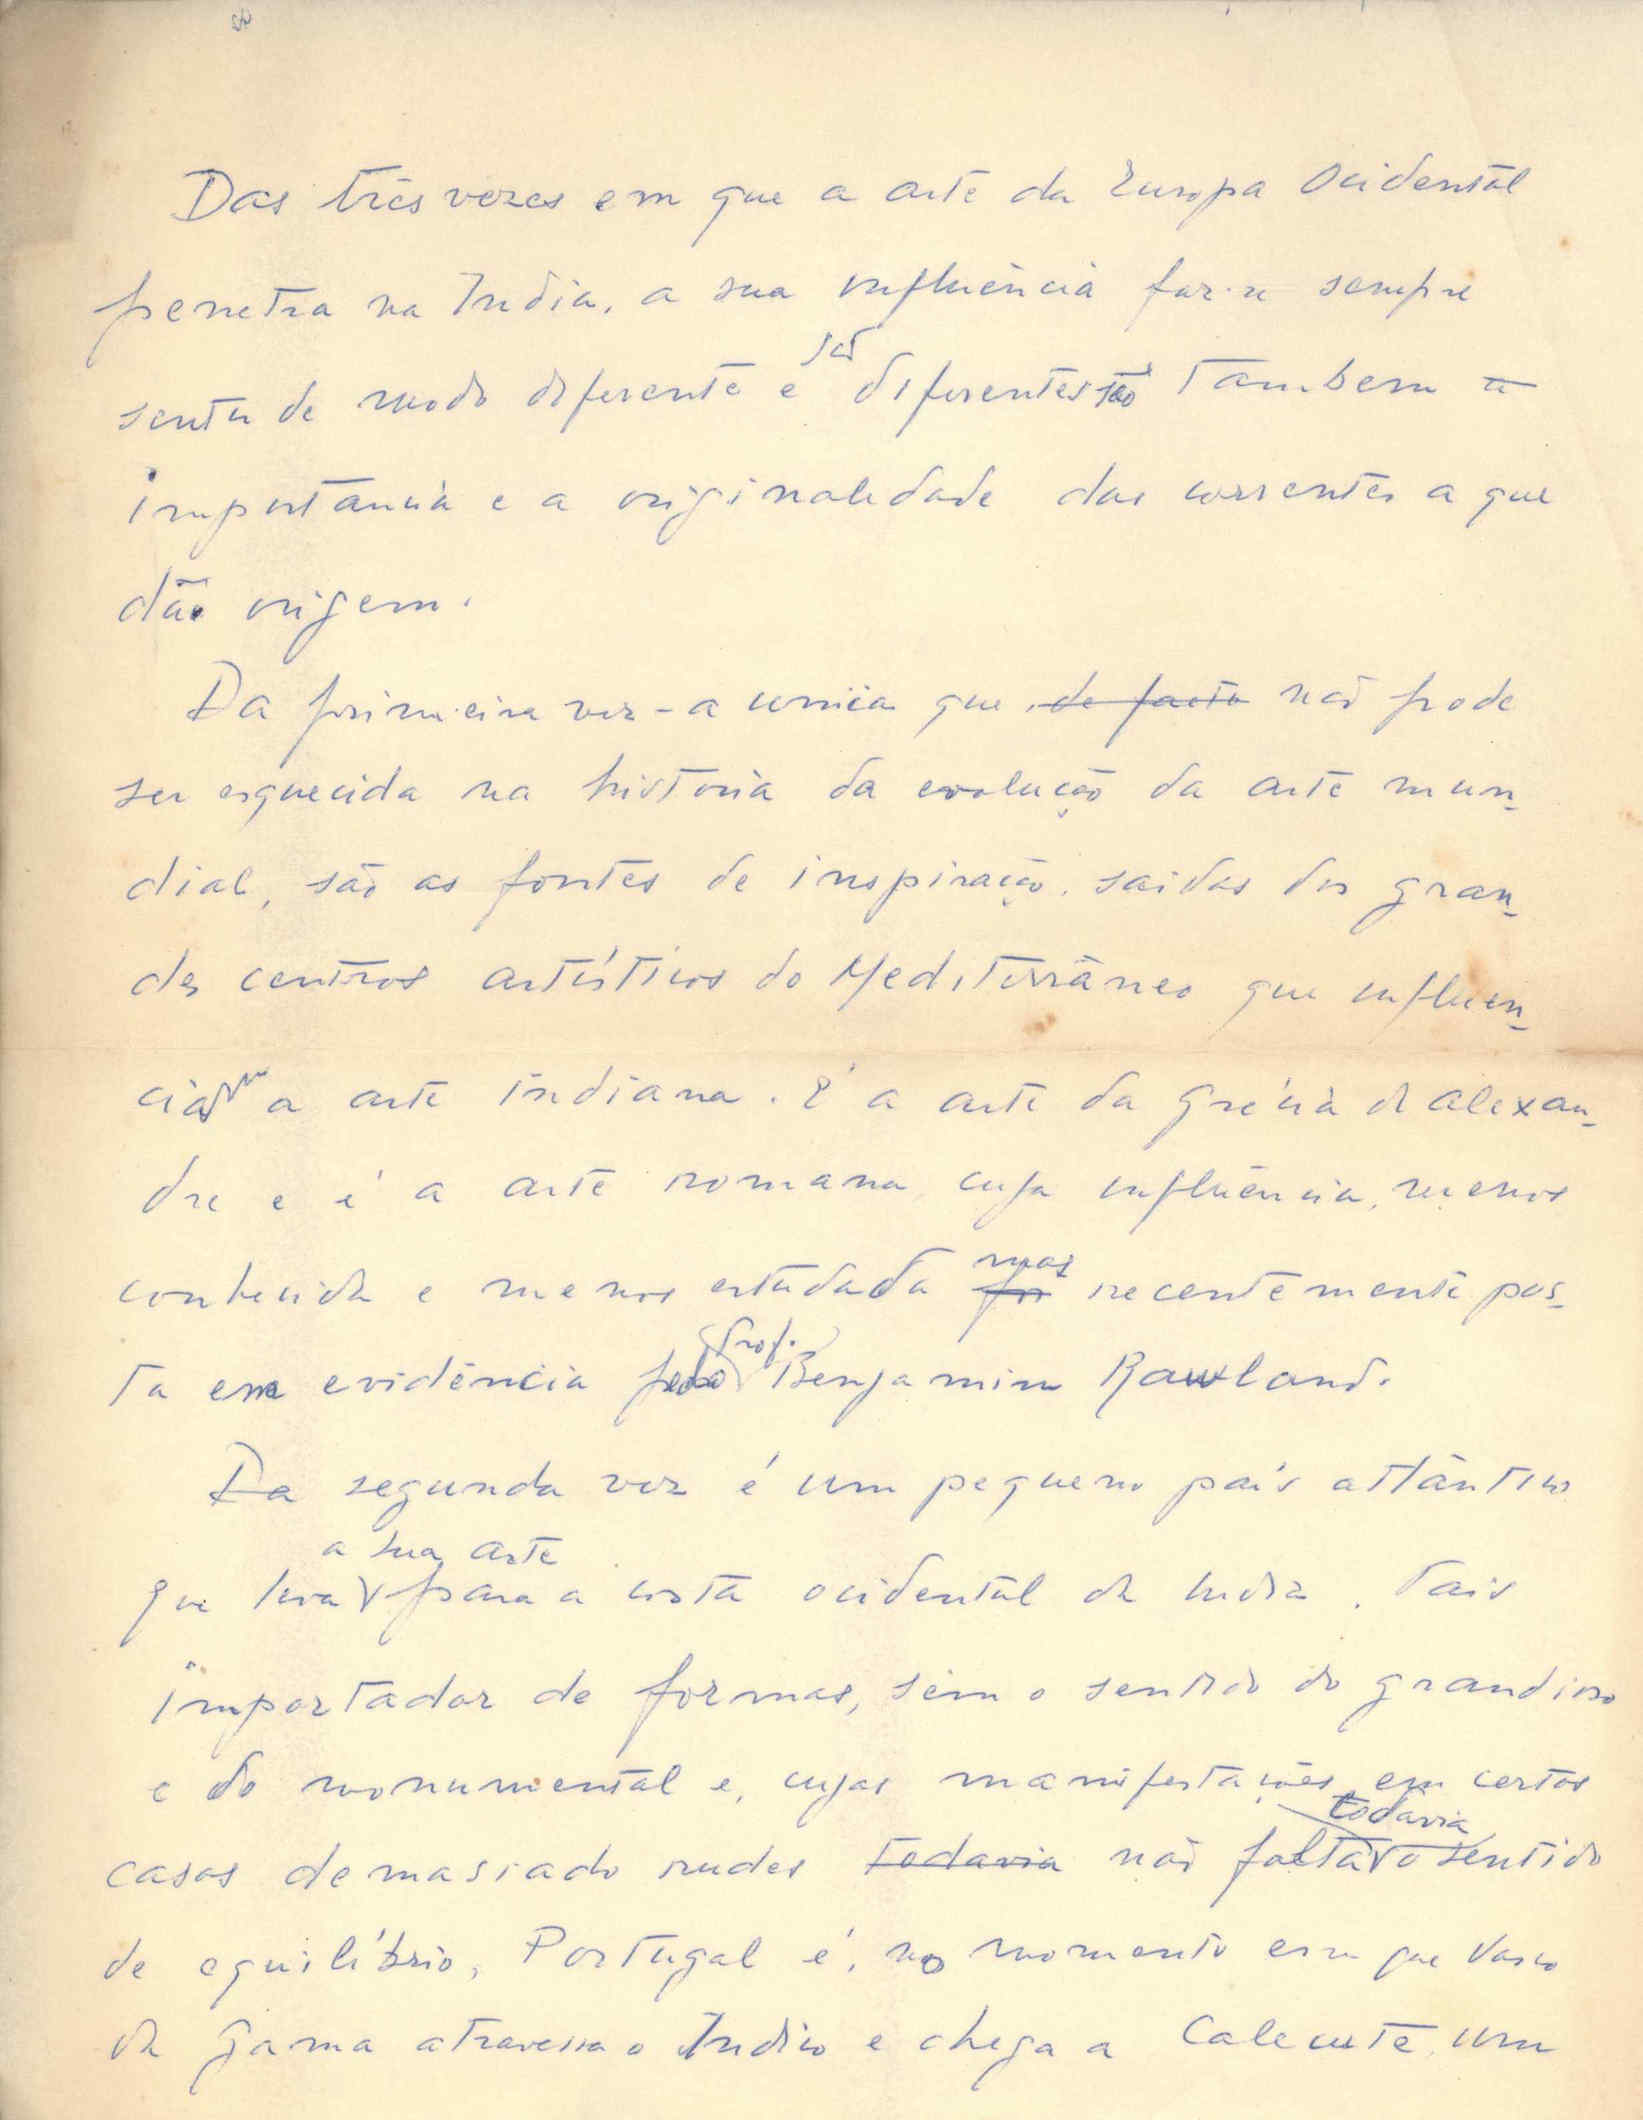 Das três vezes em que a arte da Europa Ocidental
penetra na India, a sua influência faz-se sempre
sentir de modo diferente e são diferentes tão tambem a
importancia e a originalidade das correntes a que
dão origem.
Da primeira vez - a unica que, de facto não pode
ser esquecida na história da evolução da arte mun-
dial, são as fontes de inspiração, saidas dos gran-
des centros artísticos do Mediterrâneo que influen-
ciam a arte indiana. É a arte da Grécia de Alexan-
dre e é a arte romana cuja influência, menos
conhecida e menos estudada foi mas recentemente pos-
ta em evidência pelo Prof. Benjamim Rawland.
Da segunda vez é um pequeno país atlântico
que leva a sua arte para a costa ocidental da India. País
importador de formas, sem o sentido do grandioso
e do monumental e, cujas manifestações em certos
casos demasiado rudes todavia não falta todavia o sentido
de equilíbrio, Portugal é, no momento em que Vasco
da Gama atravessa o Indico e chega a Calecute, um